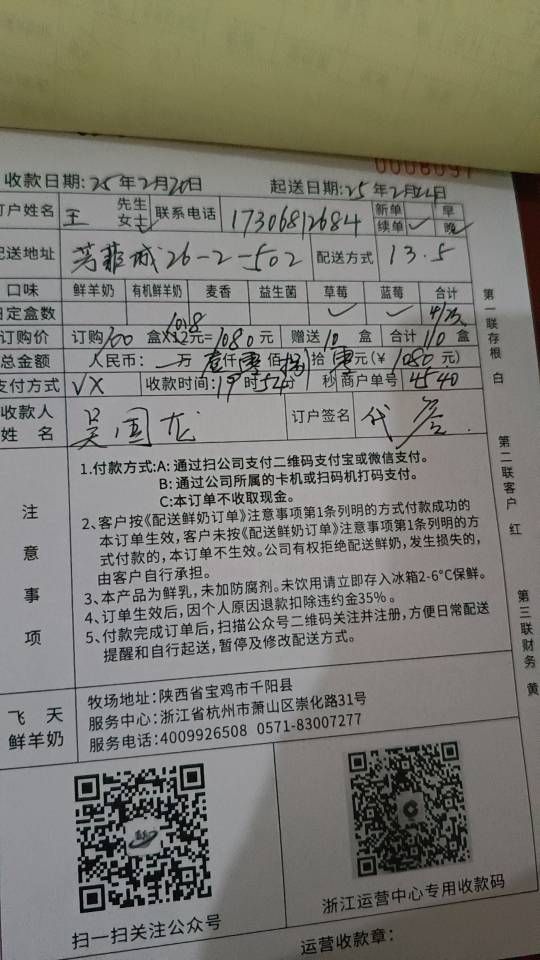 0008097
收款日期:25年2月20日 起送日期:25年2月24日
订户姓名 王 先生 女士 联系电话 17306812684 新单 早
续单 ✓ 晚 ✓
配送地址 芳菲城26-2-502 配送方式 13.5
口味 鲜羊奶 有机鲜羊奶 麦香 益生菌 草莓 蓝莓 合计
日定盒数 ✓ ✓
订购价 订购100盒X12=1080元 赠送10盒 合计110盒
10.8
总金额 人民币: 一万壹仟零佰捌拾零元(¥ 1080元)
支付方式 VX 收款时间:19时52分 秒 商户单号 4540
收款人
姓 名 吴国龙 订户签名 代
注意事项
1.付款方式:A: 通过扫公司支付二维码支付宝或微信支付。
B: 通过公司所属的卡机或扫码机打码支付。
C:本订单不收取现金。
2、客户按《配送鲜奶订单》注意事项第1条列明的方式付款成功的
本订单生效,客户未按《配送鲜奶订单》注意事项第1条列明的方
式付款的,本订单不生效。公司有权拒绝配送鲜奶,发生损失的,
由客户自行承担。
3、本产品为鲜乳,未加防腐剂。未饮用请立即存入冰箱2-6°C保鲜。
4、订单生效后,因个人原因退款扣除违约金35%。
5、付款完成订单后,扫描公众号二维码关注并注册,方便日常配送
提醒和自行起送,暂停及修改配送方式。
飞 天
鲜羊奶
牧场地址:陕西省宝鸡市千阳县
服务中心:浙江省杭州市萧山区崇化路31号
服务电话:4009926508 0571-83007277
扫一扫关注公众号
浙江运营中心专用收款码
运营收款章:
第一联存根 白
第二联客户 红
第三联财务 黄